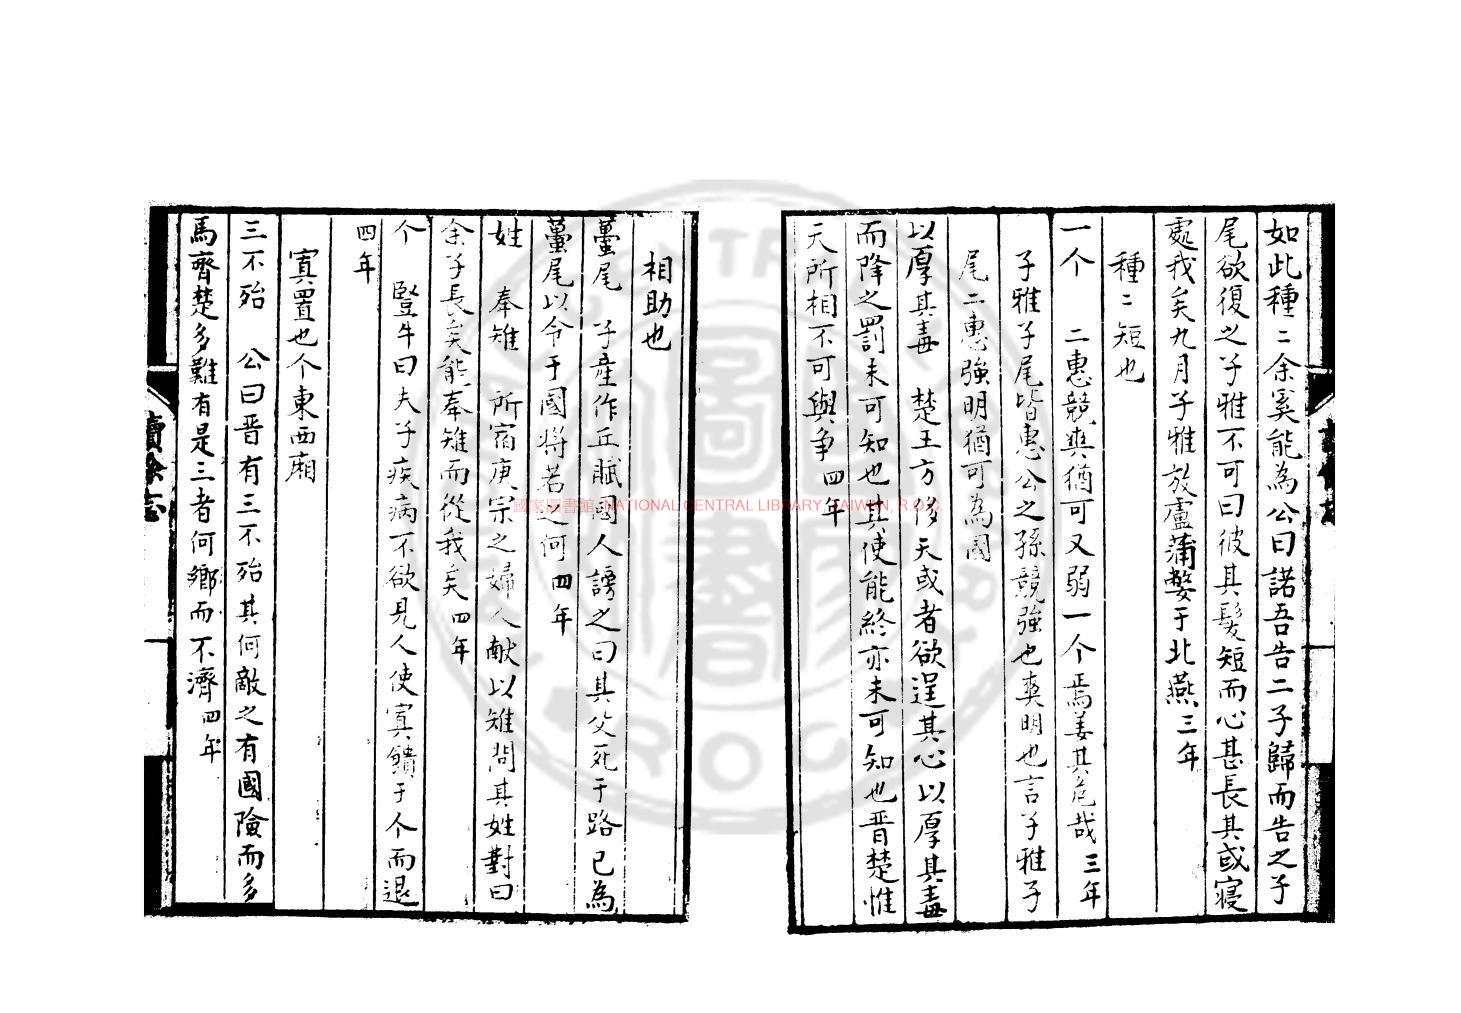 如此種二余奚能為公曰諾吾告二子歸而告之子
尾欲復之子雅不可曰彼其髮短而心甚長其或寢
處我矣九月子雅放盧蒲嫳于北燕三年
種二短也
一个 二惠競爽猶可又弱一个焉姜其危哉三年
子雅子尾皆惠公之孫競強也爽明也言子雅子
尾二惠強明猶可為國
以厚其毒 楚王方侈天或者欲逞其心以厚其毒
而降之罰未可知也其使能終亦未可知也晋楚惟
天所相不可與争四年
相助也
蠆尾 子產作丘賦國人謗之曰其父死于路已為
蠆尾以令于國將若之何四年
姓 奉雉 所宿庚宗之婦人献以雉問其姓對曰
余子長矣能奉雉而從我矣四年
个 豎牛曰夫子疾病不欲見人使寘饋于个而退
四年
寘置也个東西廂
三不殆 公曰晋有三不殆其何敵之有國險而多
馬齊楚多難有是三者何鄉而不濟四年
讀餘志
國家圖書館 NATIONAL CENTRAL LIBRARY, TAIWAN, R.O.C.